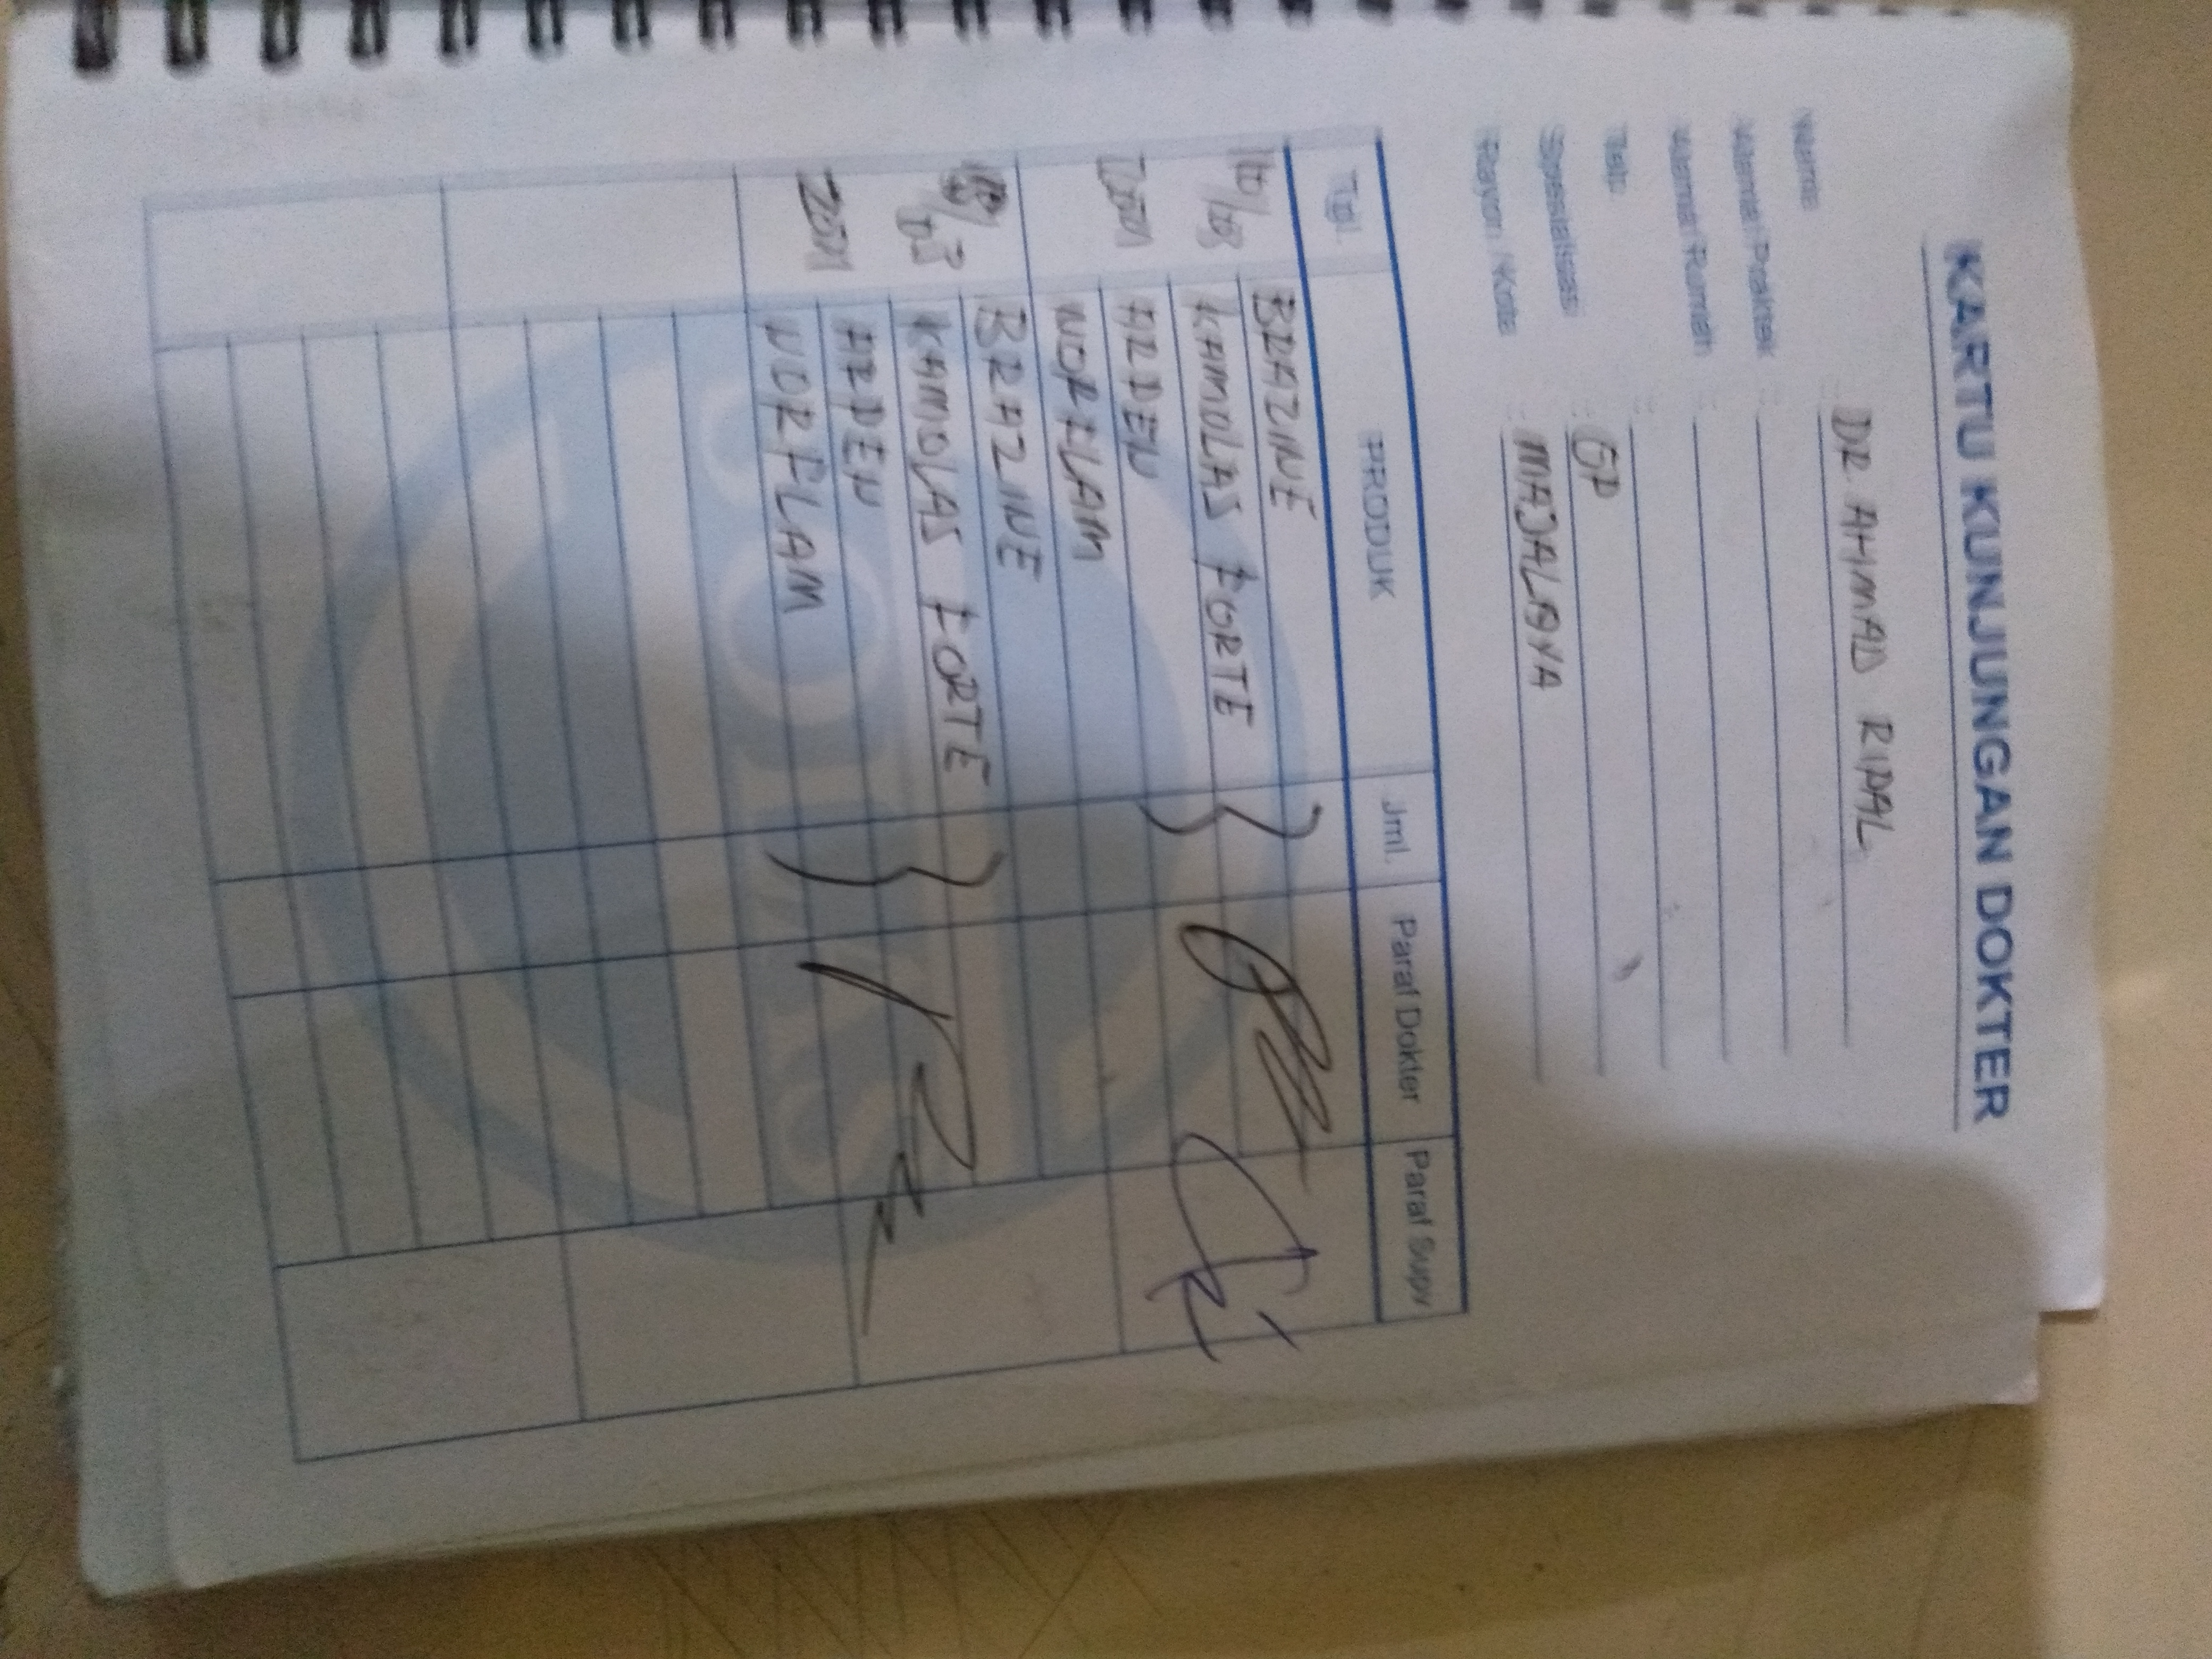 KARTU KUNJUNGAN DOKTER
Nama : DR. AHMAD RIPAL
Alamat Praktek :
Alamat Rumah :
Telp. :
Spesialisasi : GP
Rayon / Kota : MAJALAYA
Tgl. PRODUK Jml. Paraf Dokter Paraf Supv
BRAZINE
KAMOLAS FORTE
ARDEN
NORFLAM
BRAZINE
KAMOLAS FORTE
ARDEN
NORFLAM